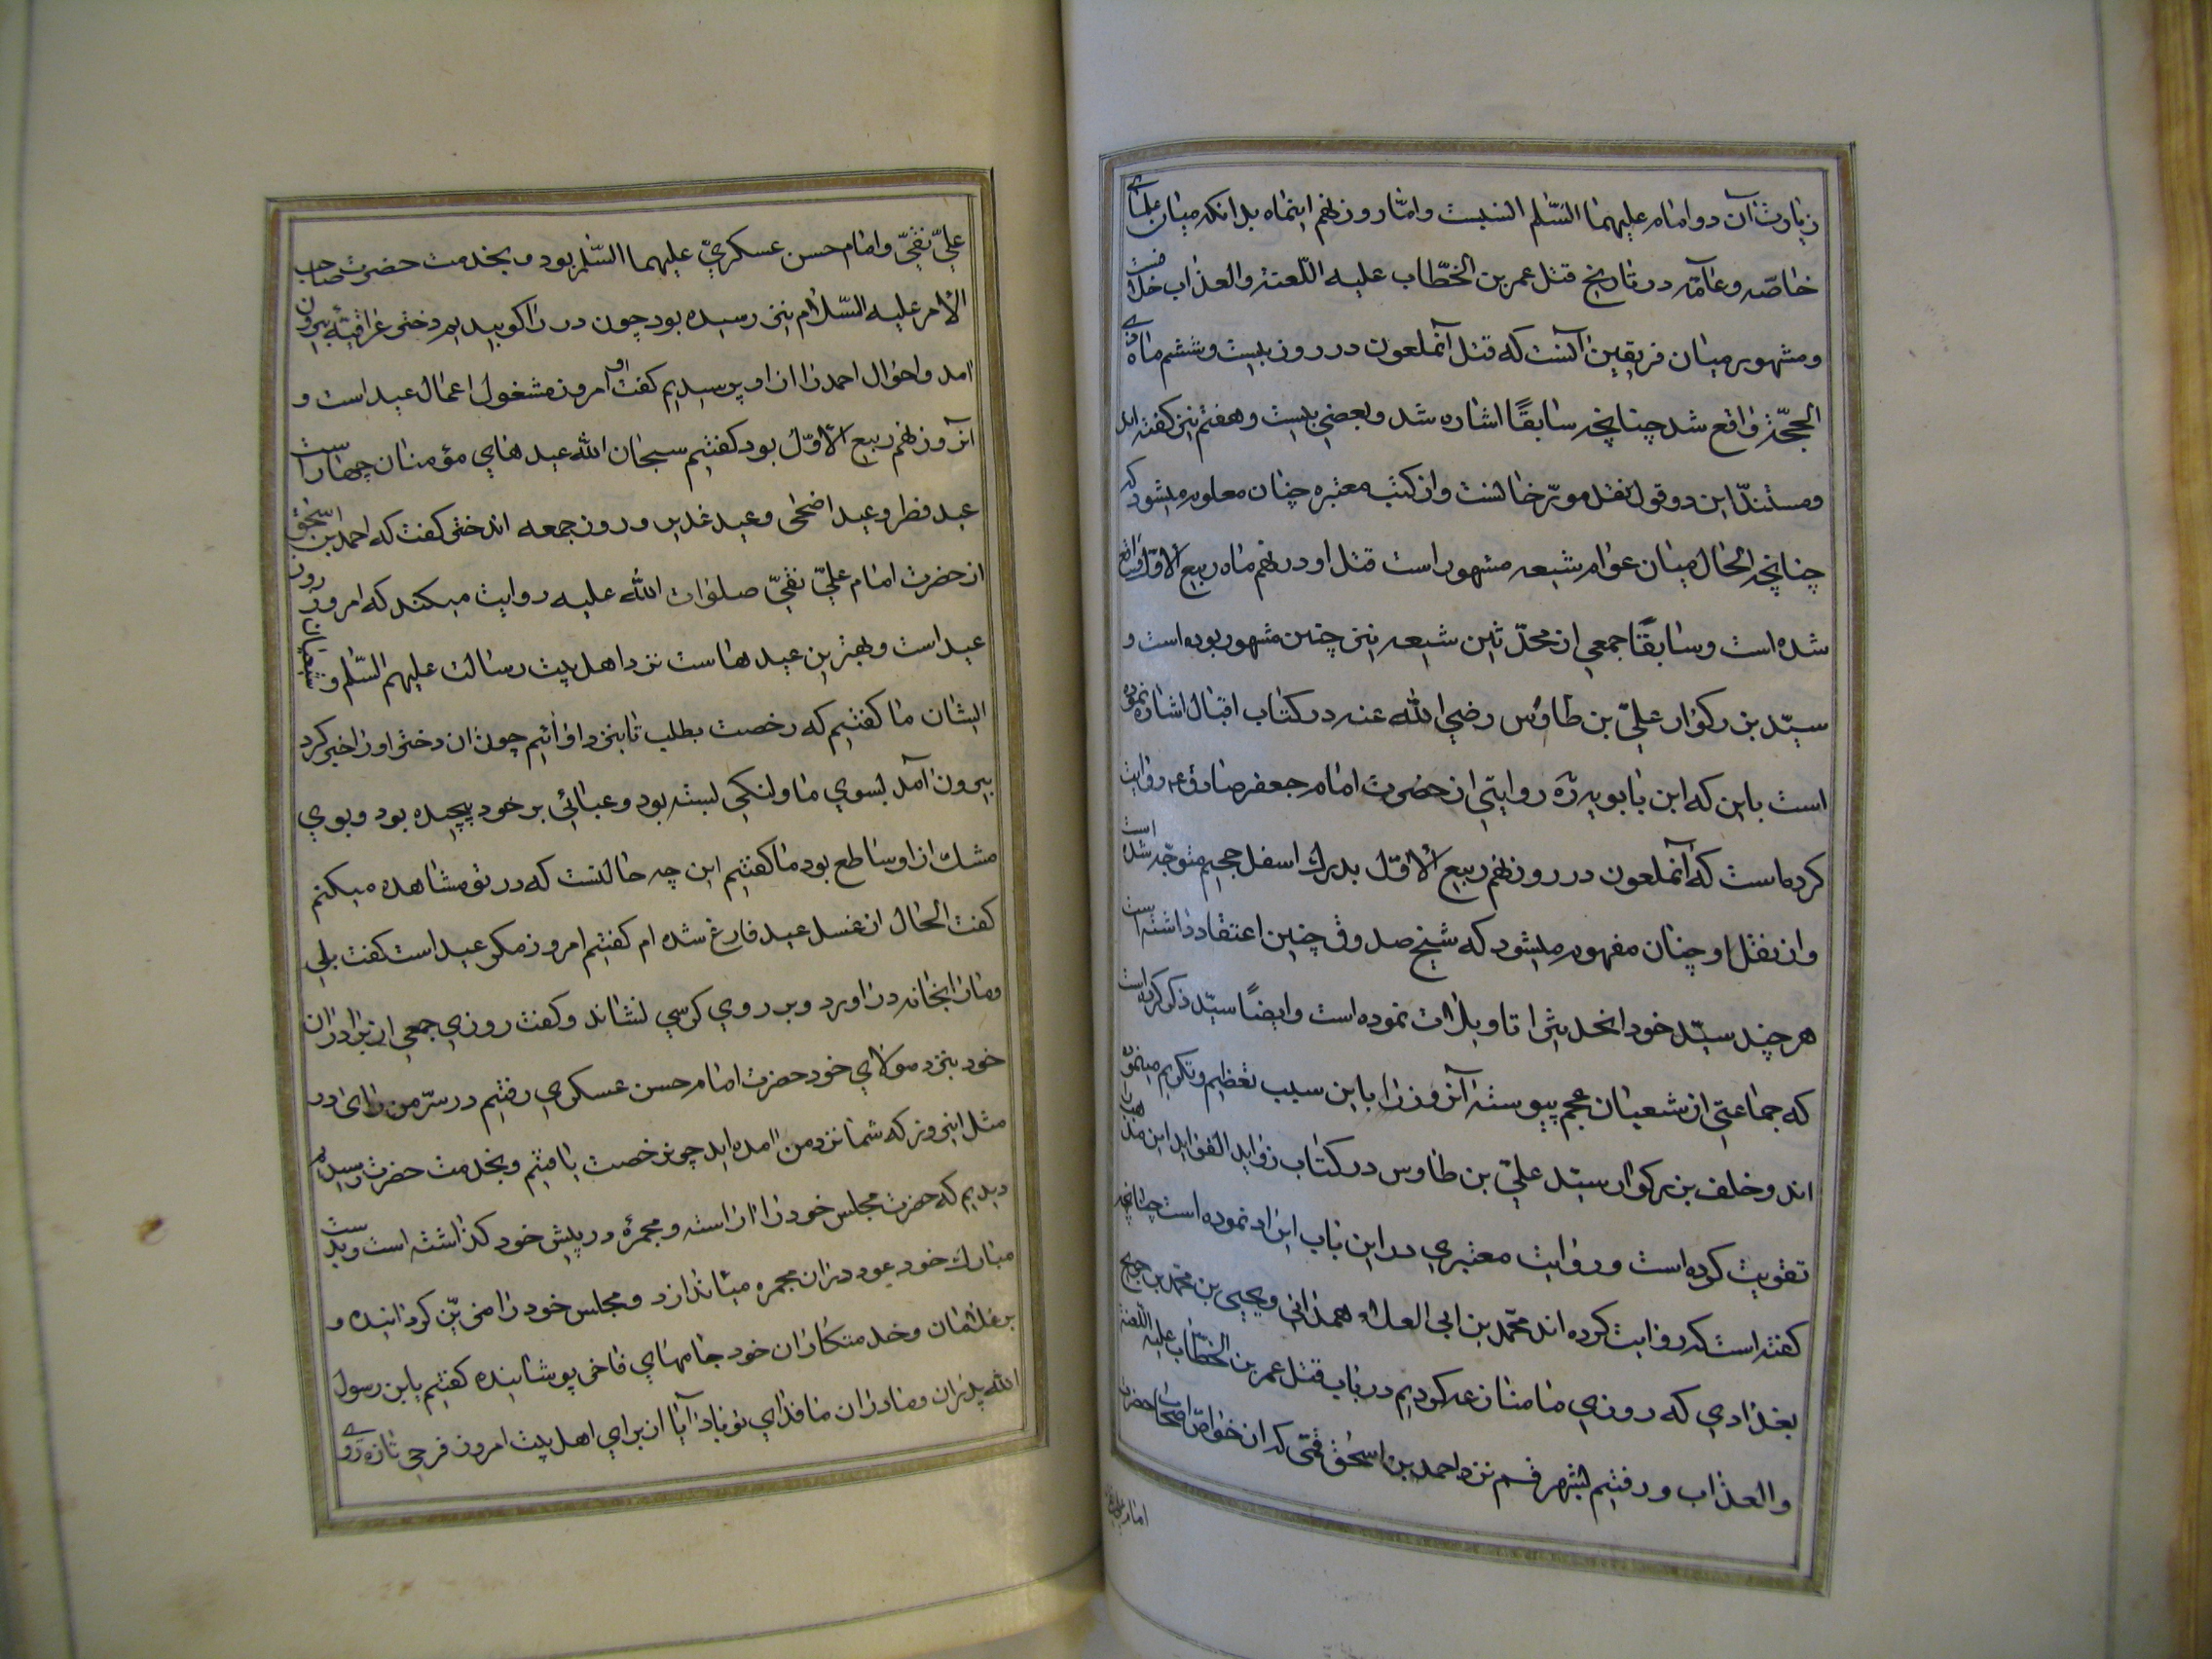 زیارت آن دو امام علیهما السّلم النسبت وامّا روز نهم اینماه بدانکه میان علمای
خاصّه وعامّه در تاریخ قتل عمر بن الخطّاب علیه اللّعنة والعذاب خلافست
ومشهور میان فریقین آنست که قتل آنملعون در روز بیست وششم ماه ذی
الحجّة واقع شد چنانچه سابقًا اشاره شد وبعضی بیست وهفتم نیز کفته اند
ومستند این دو قول نقل مورّخانست واز کتب معتبره چنان معلوم میشود که
چنانچه الحال میان عوام شیعه مشهور است قتل او در نهم ماه ربیع الاوّل واقع
شده است وسابقًا جمعی از محدّثین شیعه نیز چنین مشهور بوده است و
سیّد بزرکوار علیّ بن طاوس رضی الله عنه در کتاب اقبال اشاره نموده
است باین که ابن بابویه ره روایتی از حضرت امام جعفر صادق ع روایت
کرده است که آنملعون در روز نهم ربیع الاوّل بدرك اسفل جحیم متوجّه شده است
واز نقل او چنان مفهوم میشود که شیخ صدوق چنین اعتقاد داشته است
هر چند سیّد خود انحدیثرا تاویلات نموده است وایضًا سیّد ذکر کرده است
که جماعتی از شیعیان عجم پیوسته آنروز را باین سبب تعظیم وتکریم مینموده
اند وخلف بزرکوار سیّد علیّ بن طاوس در کتاب زواید الفواید این مذهب را
تقویت کرده است وروایت معتبری در این باب ایراد نموده است چنانچه
کفته است که روایت کرده اند محمّد بن ابی العلاء همدانی ویحیی بن محمّد بن جریح
بغدادی که روزی ما منازعه کردیم در باب قتل عمر بن الخطّاب علیه اللعنة
والعذاب ورفتیم بشهر قم نزد احمد بن اسحٰق قمّی که از خواصّ اصحاب حضرت
علیّ نقیّ وامام حسن عسکریّ علیهما السّلم بود وبخدمت حضرت صاحب
الأمر علیه السّلام نیز رسیده بود چون در را کوبیدیم دختر عراقیّهٔ بیرون
امد واحوال احمد را از او پرسیدیم کفت او امروز مشغول اعمال عید است و
آنروز نهم ربیع الاوّل بود کفتیم سبحان الله عید های مؤمنان چهار است
عید فطر وعید اضحی وعید غدیر وروز جمعه اند دختر کفت که احمد بن اسحٰق
از حضرت امام علیّ نقیّ صلوات الله علیه روایت میکند که امروز روز
عید است وبهترین عید هاست نزد اهل بیت رسالت علیهم السّلم وشیعیان
ایشان ما کفتیم که رخصت بطلب تا بنزد او آئیم چون ان دختر او را خبر کرد
بیرون آمد بسوی ما ولنکی بسته بود وعبائی بر خود پیچیده بود وبوی
مشك از او ساطع بود ما کفتیم این چه حالتست که در تو مشاهده میکنم
کفت الحال از غسل عید فارغ شده ام کفتیم امروز مکر عید است کفت بلی
ومارا بخانه در اورد وبر روی کرسی نشاند وکفت روزی جمعی از برادران
خود بنزد مولای خود حضرت امام حسن عسکری رفتیم در سرّ من رای در
مثل اینروز که شما نزد من امده اید چون رخصت یافتیم وبخدمت حضرت رسیدیم
دیدیم که حضرت مجلس خود را اراسته ومجمرهٔ در پیش خود کذاشته است وبدست
مبارك خود عود در ان مجمره میاندازد ومجلس خود را مزیّن کردانیده و
بر غلامان وخدمتکاران خود جامهای فاخر پوشانیده کفتیم یابن رسول
الله پدران ومادران ما فدای تو باد آیا از برای اهل بیت امروز فرحی تازه روی